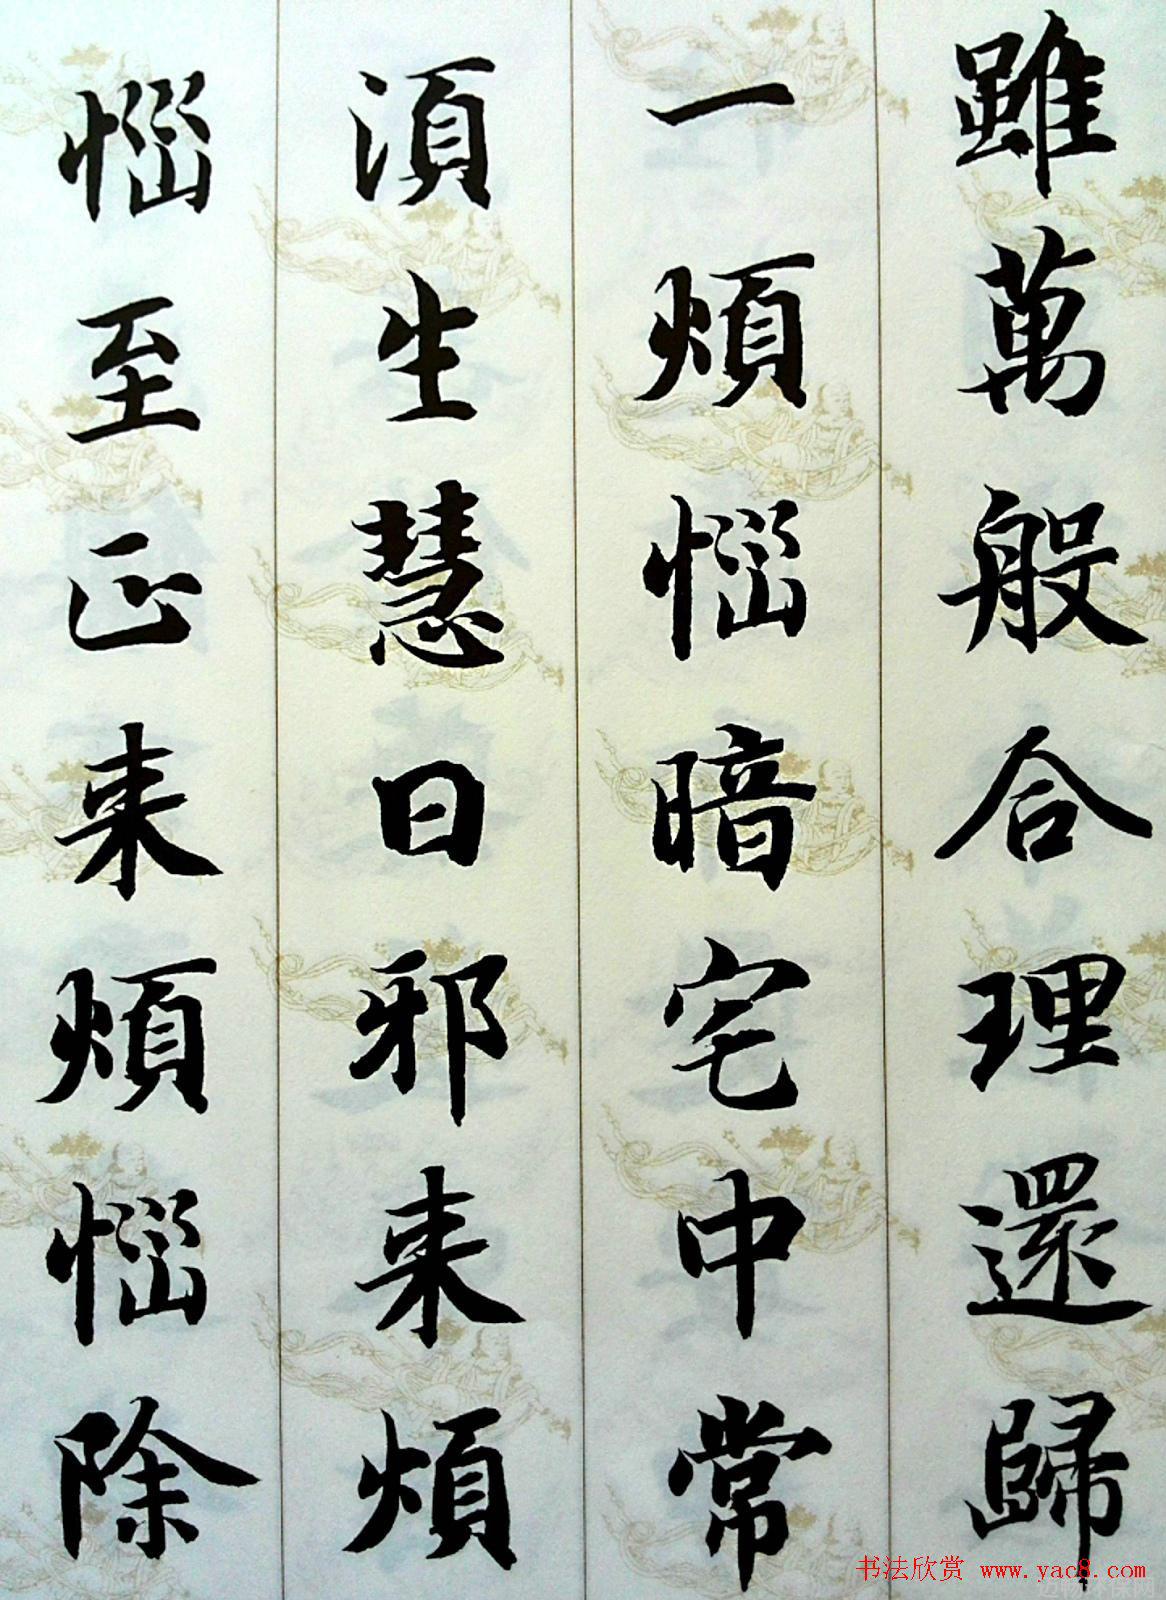 雖萬般合理還歸
一煩惱暗宅中常
須生慧日邪来煩
惱至正来煩惱除
书法欣赏 www.yac8.com